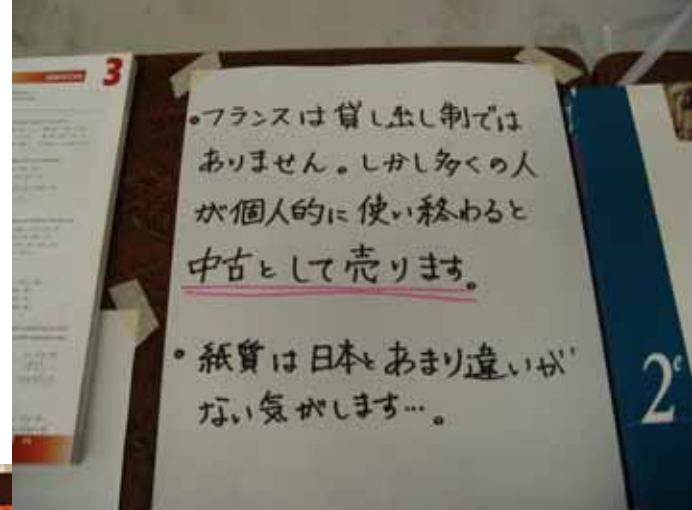 3
・フランスは貸し出し制では
ありません。しかし多くの人
が個人的に使い終わると
中古として売ります。
・紙質は日本とあまり違いが
ない気がします…。
2e